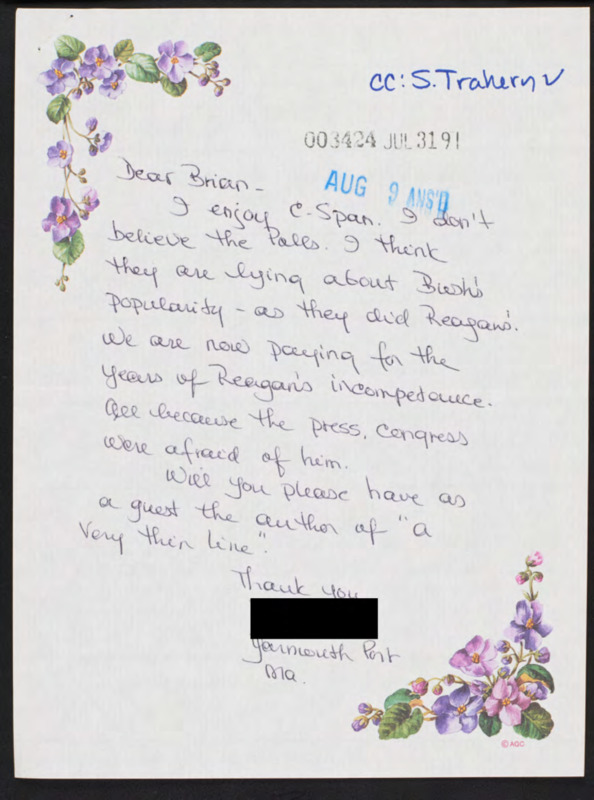 cc: S. Trahern ✓
003424 JUL 31 91
AUG 9 ANS'D
Dear Brian -
I enjoy C-Span. I don't
believe the Polls. I think
they are lying about Bush's
popularity - as they did Reagan's.
We are now paying for the
years of Reagan's incompetance.
All because the press, congress
were afraid of him.
Will you please have as
a guest the author of "a
Very thin line".
Thank you
Yarmouth Port
Ma.
© AGC